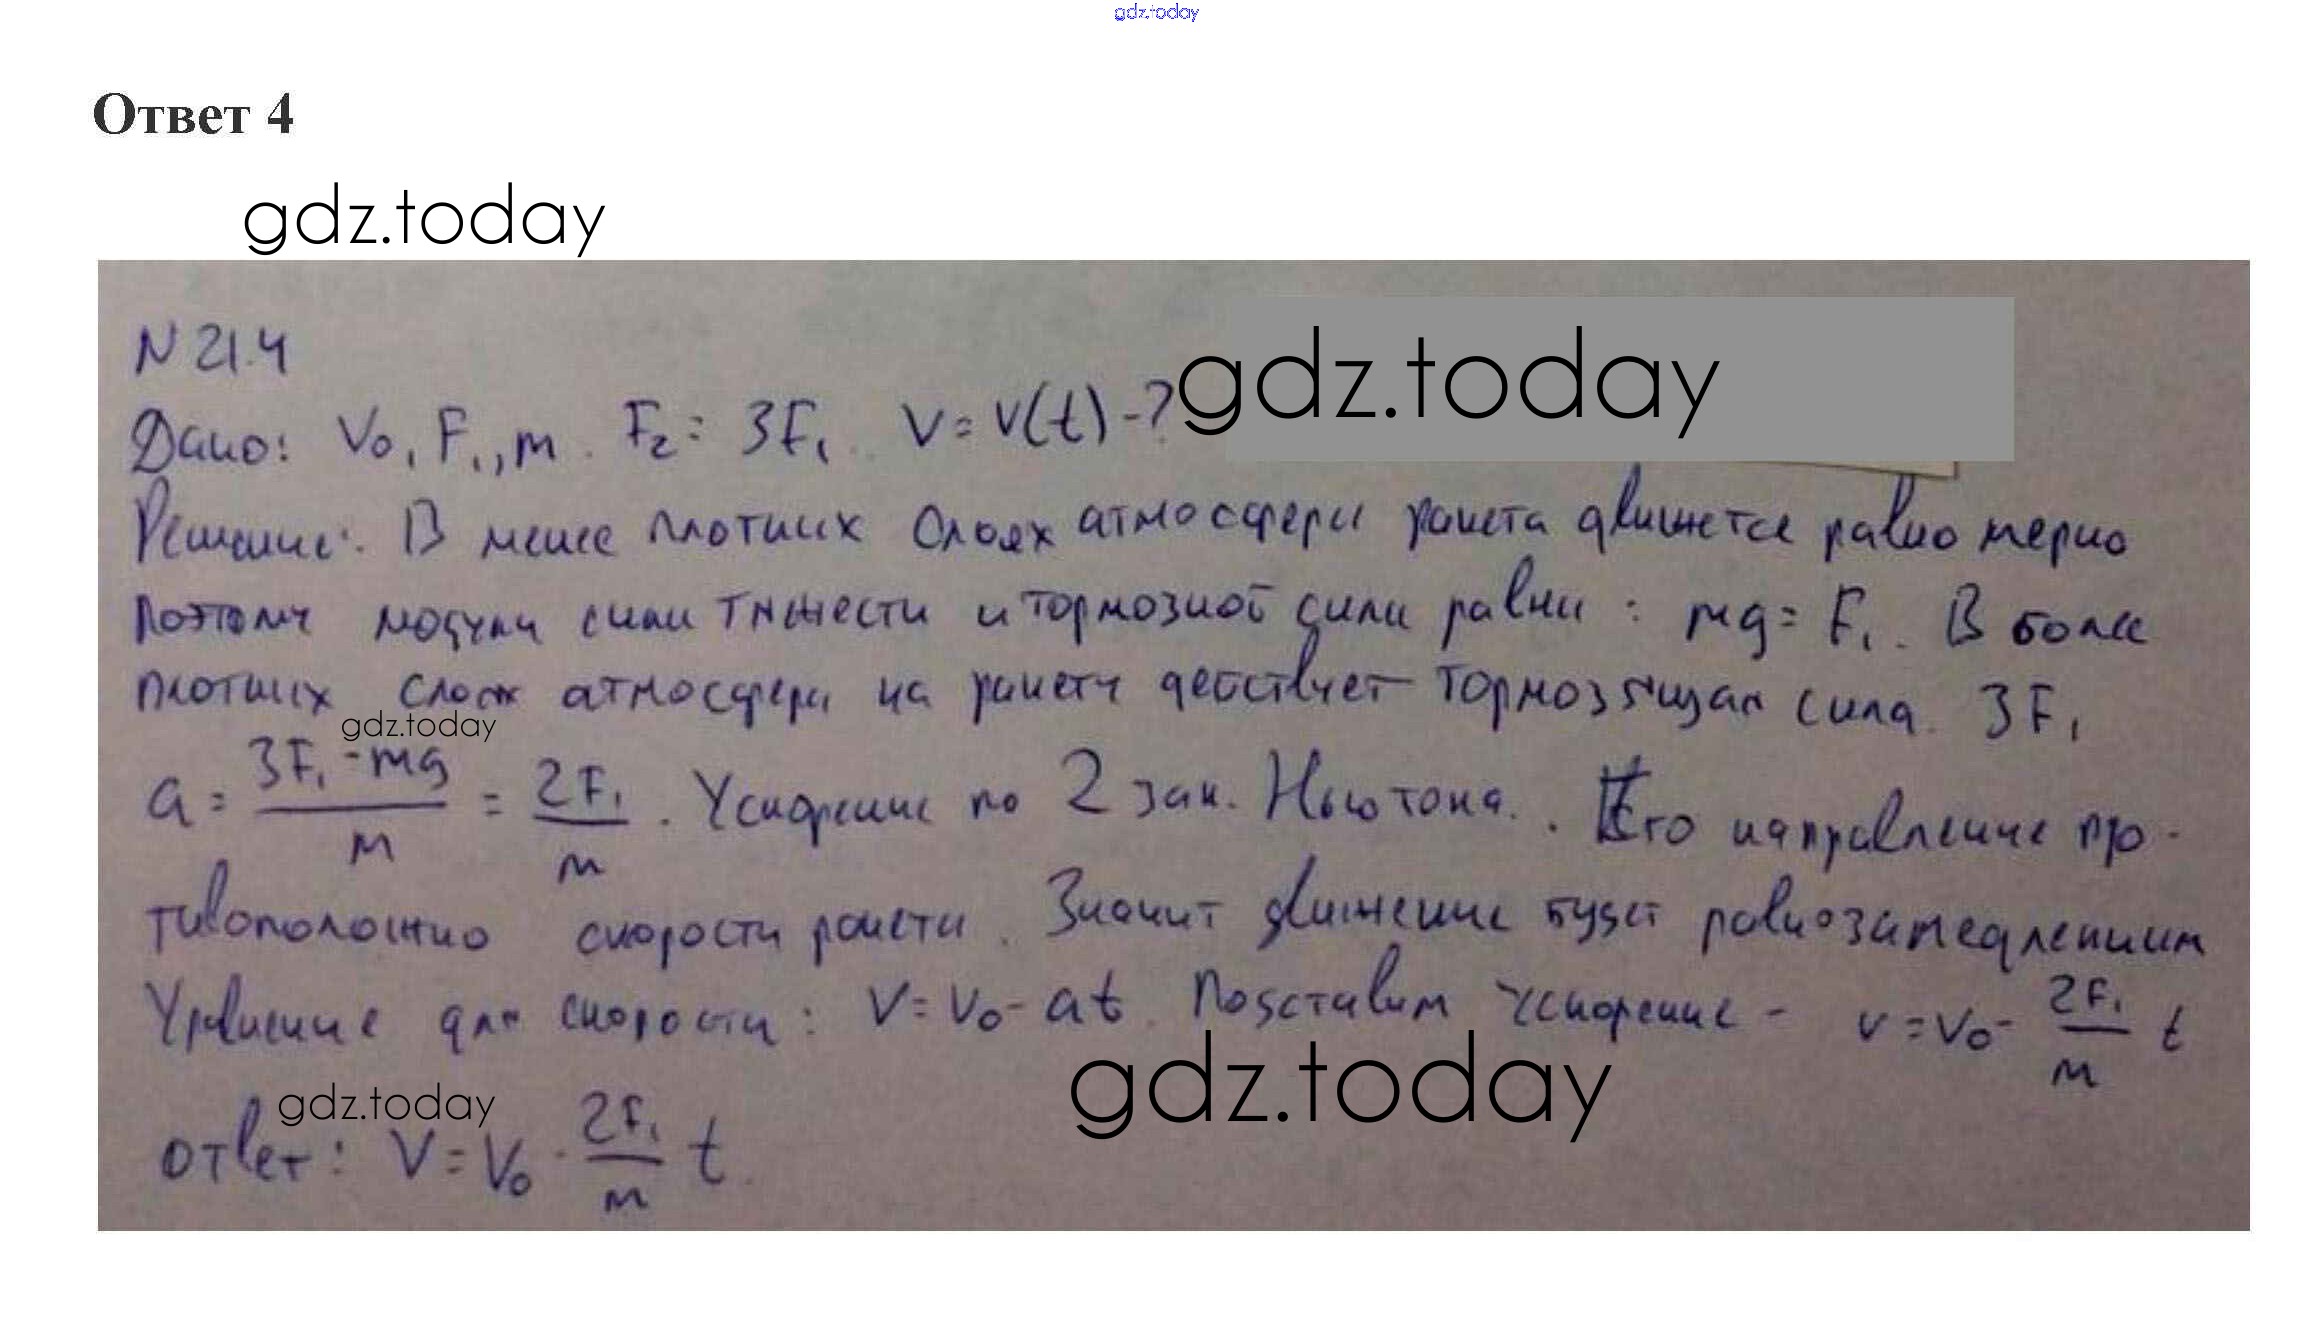 gdz.today
Ответ 4
gdz.today
N 21.4
gdz.today
Дано: V₀, F₁, m. F₂ = 3F₁. V = V(t) - ?
Решение: В менее плотных слоях атмосферы ракета движется равномерно
поэтому модули силы тяжести и тормозной силы равны: mg = F₁. В более
плотных слоях атмосферы на ракету действует тормозящая сила 3F₁
gdz.today
a = (3F₁ - mg)/m = 2F₁/m. Ускорение по 2 зак. Ньютона. Его направление про-
тивоположно скорости ракеты. Значит движение будет равнозамедленным
Уравнение для скорости: V = V₀ - at. Подставим ускорение - v = V₀ - 2F₁/m t
gdz.today
gdz.today
ответ: V = V₀ - 2F₁/m t.